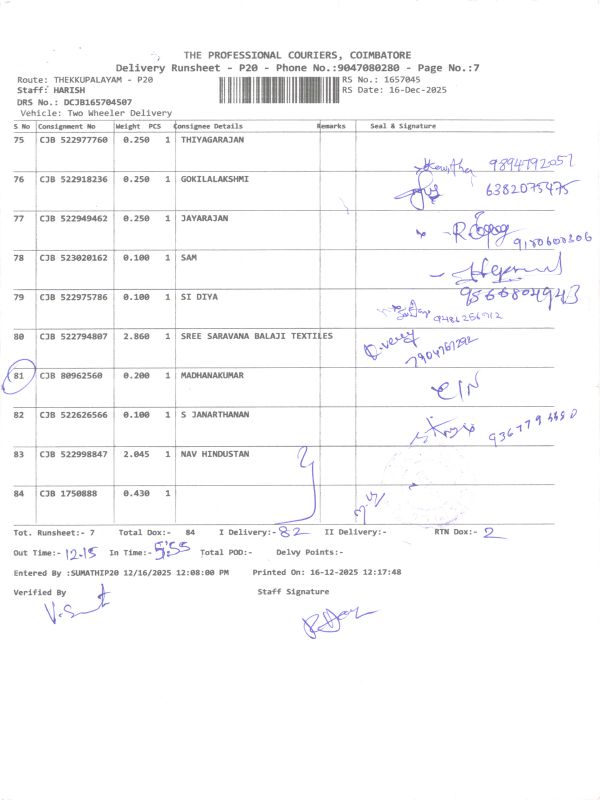 THE PROFESSIONAL COURIERS, COIMBATORE
Delivery Runsheet - P20 - Phone No.:9047080280 - Page No.:7
Route: THEKKUPALAYAM - P20 RS No.: 1657045
Staff: HARISH RS Date: 16-Dec-2025
DRS No.: DCJB165704507
Vehicle: Two Wheeler Delivery
S No Consignment No Weight PCS Consignee Details Remarks Seal & Signature
75 CJB 522977760 0.250 1 THIYAGARAJAN
9894792057
76 CJB 522918236 0.250 1 GOKILALAKSHMI 6382075475
77 CJB 522949462 0.250 1 JAYARAJAN
9180600306
78 CJB 523020162 0.100 1 SAM
79 CJB 522975786 0.100 1 SI DIYA 9566804943
9486256712
80 CJB 522794807 2.860 1 SREE SARAVANA BALAJI TEXTILES
7904767292
81 CJB 80962560 0.200 1 MADHANAKUMAR
82 CJB 522626566 0.100 1 S JANARTHANAN
83 CJB 522998847 2.045 1 NAV HINDUSTAN
84 CJB 1750888 0.430 1
Tot. Runsheet:- 7 Total Dox:- 84 I Delivery:- 82 II Delivery:- RTN Dox:- 2
Out Time:- 12.15 In Time:- 5:55 Total POD:- Delvy Points:-
Entered By :SUMATHIP20 12/16/2025 12:08:00 PM Printed On: 16-12-2025 12:17:48
Verified By Staff Signature